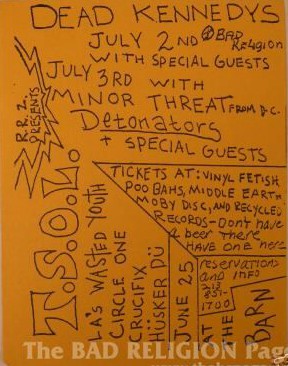 DEAD KENNEDYS
JULY 2ND @ BAD Religion
WITH SPECIAL GUESTS
JULY 3RD WITH
MINOR THREAT FROM D.C.
Detonators
+ SPECIAL GUESTS
PRESENTS
TICKETS AT: VINYL FETISH
POO BAHS, MIDDLE EARTH
MOBY DISC, AND RECYCLED
RECORDS - Dont have
a beer there
HAVE ONE here
T.S.O.L.
LA's WASTED YOUTH
CIRCLE ONE
CRUCIFIX
HÜSKER DÜ
JUNE 25
AT
THE
BARN
reservations
and INFO
213
851-
1700
The BAD RELIGION Page